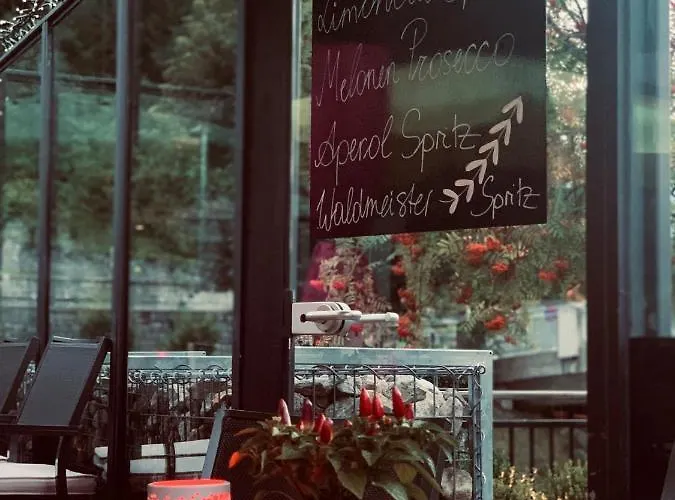 Melonen Prosecco
Aperol Spritz
Waldmeister Spritz